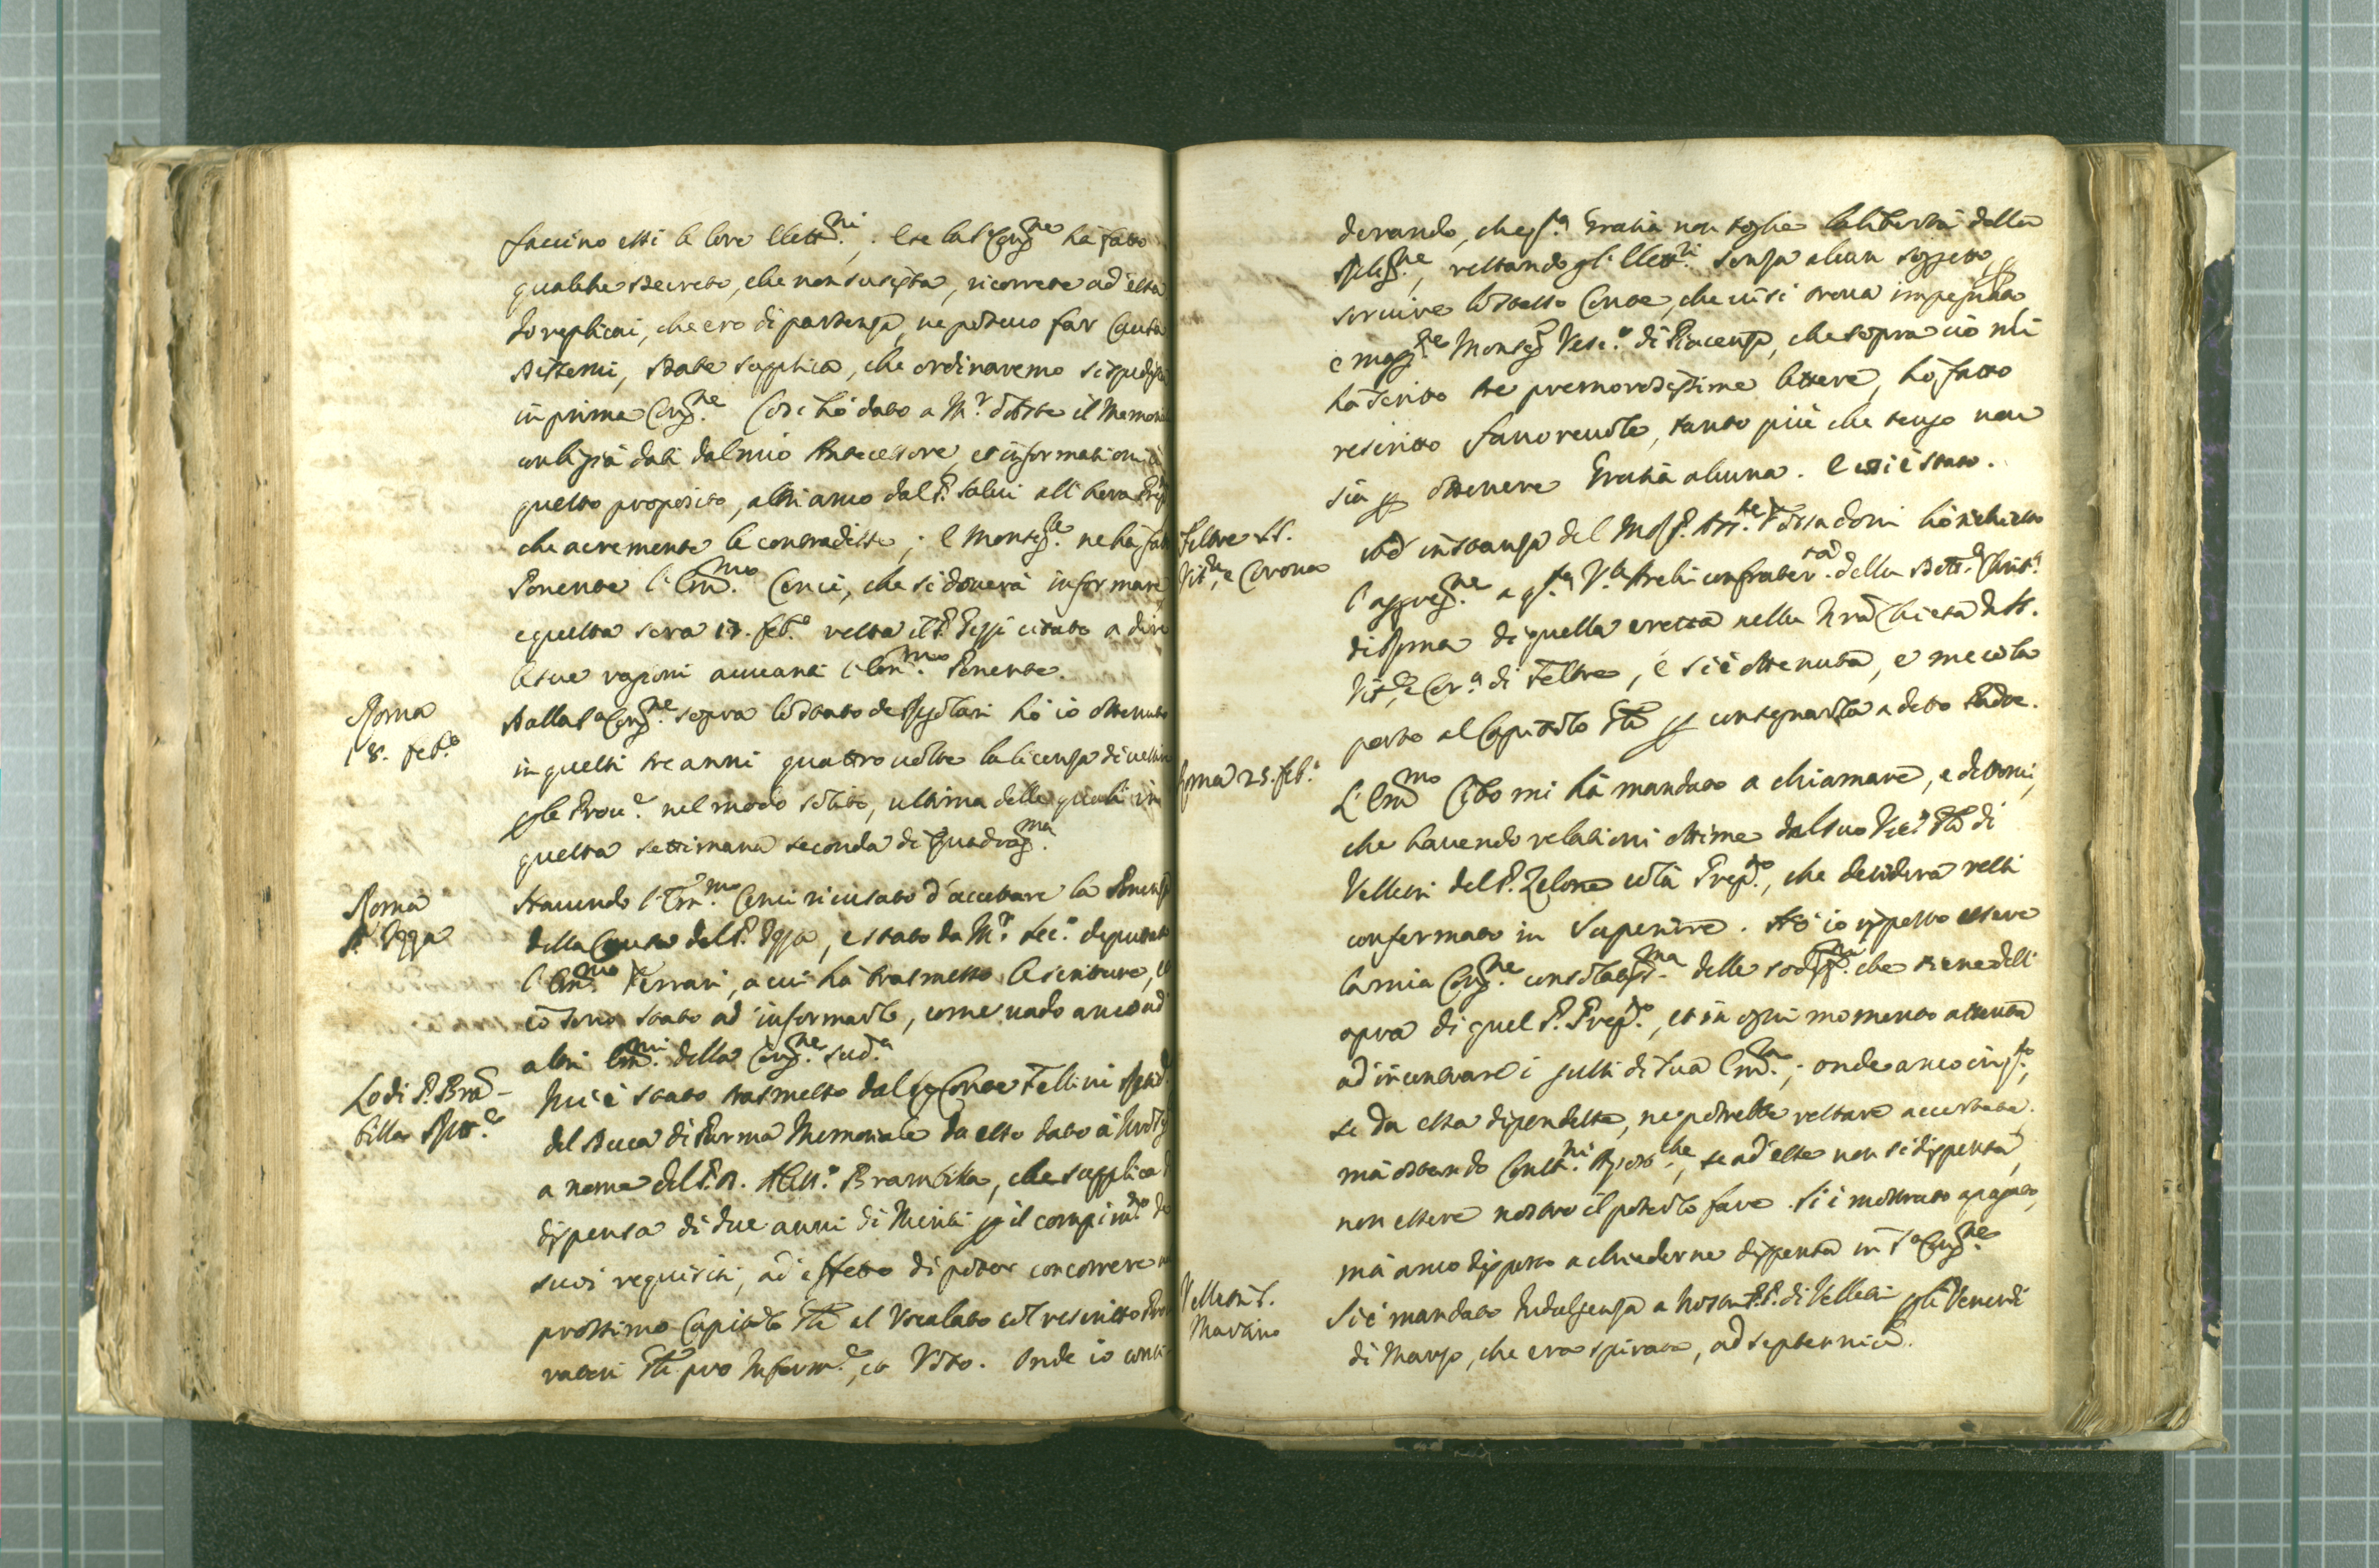 faccino essi le loro Elett.ni; e se la S. Cong.ne hà fatto
qualche Decreto, che non susista, ricorrete ad essa
Io replicai, che ero di partenza, ne potevo far Causa
Dissemi, date supplica, che ordinaremo si spedisca
in prima Cong.ne Così hò dato a M.r d'Asste il Memoriale
con li già dati dal mio Antecessore, et informationi à
questo proposito, altri anco dal P. Salvi all'hora
che acremente le contradisse; e Monsig.re ne hà fatto
Ponente l'Em.mo Cenci, che si doverà informare,
e questa sera 17. feb.o resta il P. citato a dire
le sue ragioni avvanti l'Em.mo Ponente.
Roma
18. feb.o
Dalla S.a Cong.ne sopra lo stato de Regolari hò io ottenuto
in questi tre anni quattro volte la licenza di vestire
per le Prov.e nel modo solito, ultima delle quali in
questa settimana seconda di Quadrag.ma
Roma
P. Ugga
Havendo l'Em.mo Cenci ricusato d'accettare la Ponenza
della Causa del P. Ugga, è stato da M.r Sec.o deputato
l'Em.mo Ferrari, a cui hà trasmesso le scritture, et
io sono stato ad informarlo, come vado anco ad
altri Em.mi della Cong.ne sud.a
Lodi P. Bra-
billa
Mi è stato trasmesso dal Sig. Conte Fellini
del Duca di Parma Memoriale da esso dato à
a nome del P. D. Aless.o Brambilla, che supplica
dispensa di due anni di Meriti per il compim.to de
suoi requisiti, ad effetto di poter concorrere
prossimo Capitolo Gñle al Vocalato col rescritto
ratori Gñli pro Inform.e, et Voto. Onde io consi-
derando, che q.sta Gratia non toglie la libertà della
Relig.ne, restando gl'Elett.ri senza alcun soggetto, per
servire lo stesso Conte, che vi si trova impegnato
e magg.te Monsig.r Vesc.o di Piacenza, che sopra ciò mi
hà scritto tre premorosissime lettere, hò fatto
rescritto favorevole, tanto più che tengo non
sia per ottenere Gratia alcuna. E così è stato.
Feltre SS.
Vit.e, e Corona
Ad instanza del M.R.P. Ass.te Tossadoni hò richiesto
l'aggreg.ne a q.sta V.le Archiconfrater.tà della Dott.a Christ.a
di Roma di quella eretta nella Nrã Chiesa de SS.
Vit.e, e Cor.a di Feltre, e si è ottenuta, e meco la
porto al Capitolo Gñle per consegnarla a detto Padre.
Roma 25. feb.o
L'Em.mo Cibo mi hà mandato a chiamare, e dettomi,
che havendo relationi ottime dal suo Vic.o Gñle di
Velletri del P. Zelone colà Prep.to, che desidera resti
confermato in Superiore. Hò io risposto essere
la mia Cong.ne consolatis.ma delle sodisf.ni che riene dell'
opra di quel P. Prep.to, et in ogni momento attenta
ad incontrare i gusti di Sua Em.za; onde anco in q.sto,
se da essa dipendesse, ne potrebbe restare accertata.
mà ostando Constit.ni Apost.che, se ad esse non si dispensa,
non essere nostro il poterlo fare. Si è mostrato apagato,
mà anco disposto a chiederne dispensa in S.a Cong.ne
Velletri S.
Martino
Si è mandato Indulgenza a Nostri P.P. di Velletri per li Venerdi
di Marzo, che era spirata, ad septennio.